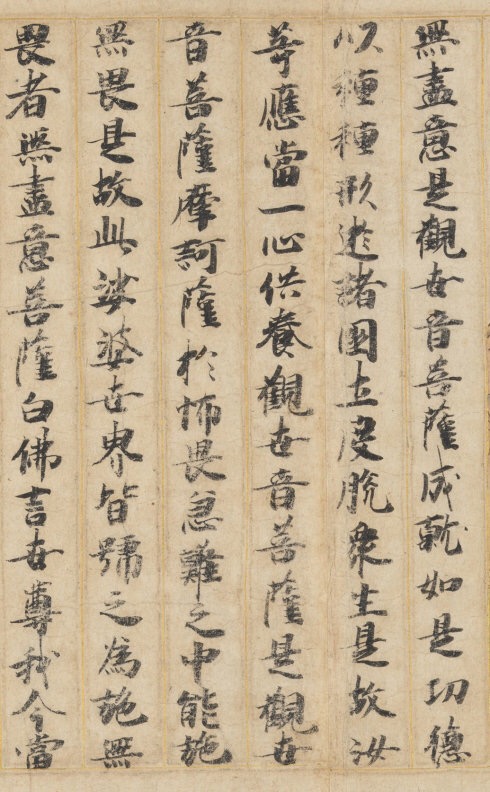 無盡意是觀世音菩薩成就如是功德
以種種形遊諸國土度脫衆生是故汝
等應當一心供養觀世音菩薩是觀世
音菩薩摩訶薩於怖畏急難之中能施
無畏是故此娑婆世界皆號之為施無
畏者無盡意菩薩白佛言世尊我今當